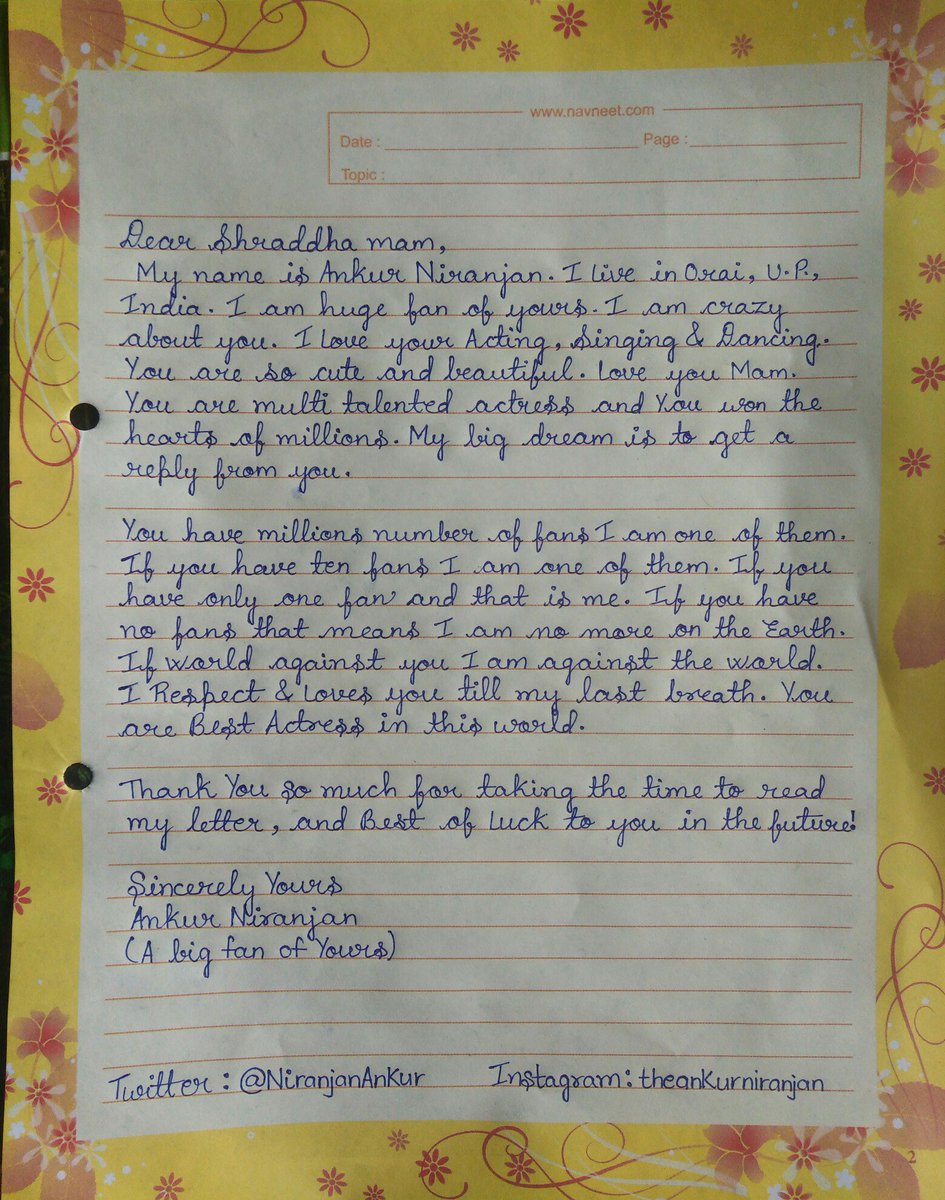 www.navneet.com
Date : Page :
Topic :
Dear Shraddha mam,
My name is Ankur Niranjan. I live in Orai, U.P.,
India. I am huge fan of yours. I am crazy
about you. I Love your Acting, Singing & Dancing.
You are so cute and beautiful. Love you Mam.
You are multi talented actress and You won the
hearts of millions. My big dream is to get a
reply from you.
You have millions number of fans I am one of them.
If you have ten fans I am one of them. If you
have only one fan and that is me. If you have
no fans that means I am no more on the Earth.
If world against you I am against the world.
I Respect & Loves you till my last breath. You
are Best Actress in this world.
Thank You so much for taking the time to read
my letter, and Best of Luck to you in the future!
Sincerely Yours
Ankur Niranjan
(A big fan of Yours)
Twitter : @NiranjanAnkur Instagram : theankurniranjan
2